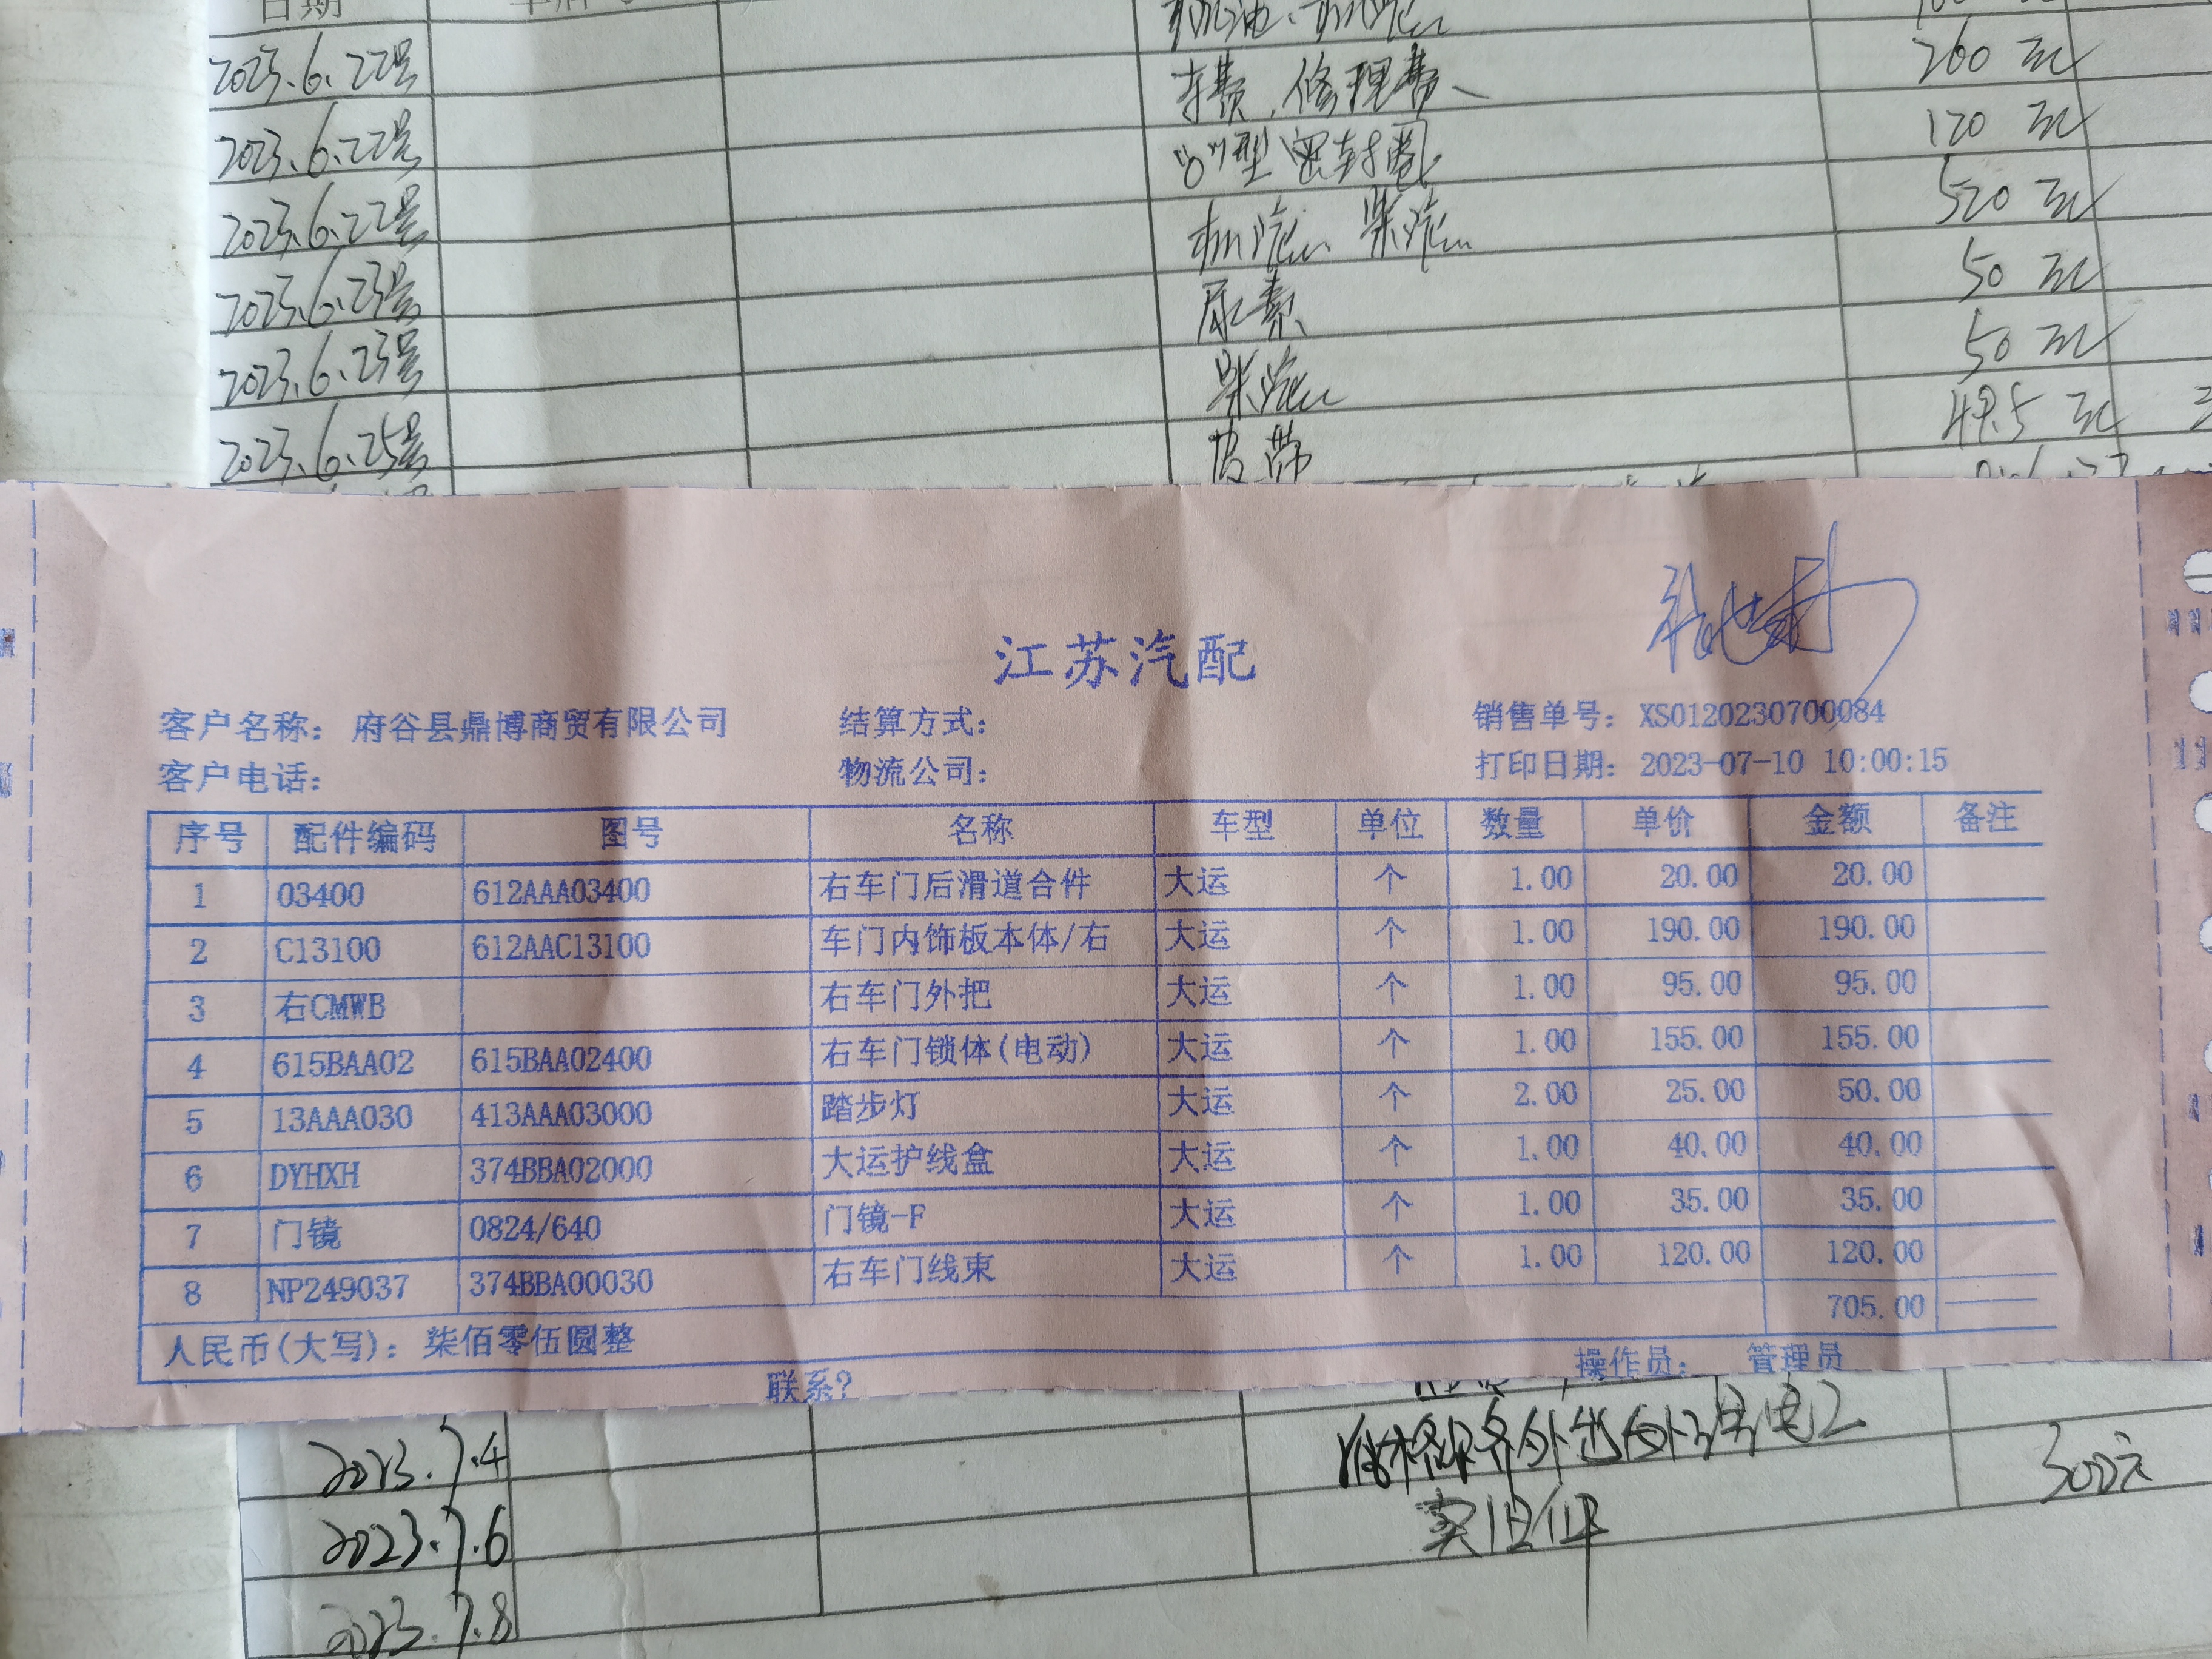 日期
2023.6.22号 260元
2023.6.22号 "O"型密封圈 120元
2023.6.22号 520元
2023.6.23号 尿素 50元
2023.6.23号 50元
2023.6.25号 皮带 元
江苏汽配
客户名称: 府谷县鼎博商贸有限公司 结算方式: 销售单号: XS0120230700084
客户电话: 物流公司: 打印日期: 2023-07-10 10:00:15
序号 配件编码 图号 名称 车型 单位 数量 单价 金额 备注
1 03400 612AAA03400 右车门后滑道合件 大运 个 1.00 20.00 20.00
2 C13100 612AAC13100 车门内饰板本体/右 大运 个 1.00 190.00 190.00
3 右CMWB 右车门外把 大运 个 1.00 95.00 95.00
4 615BAA02 615BAA02400 右车门锁体(电动) 大运 个 1.00 155.00 155.00
5 13AAA030 413AAA03000 踏步灯 大运 个 2.00 25.00 50.00
6 DYHXH 374BBA02000 大运护线盒 大运 个 1.00 40.00 40.00
7 门镜 0824/640 门镜-F 大运 个 1.00 35.00 35.00
8 NP249037 374BBA00030 右车门线束 大运 个 1.00 120.00 120.00
705.00
人民币(大写): 柒佰零伍圆整
联系? 操作员: 管理员
2023.7.4
2023.7.6 卖旧件
2023.7.8